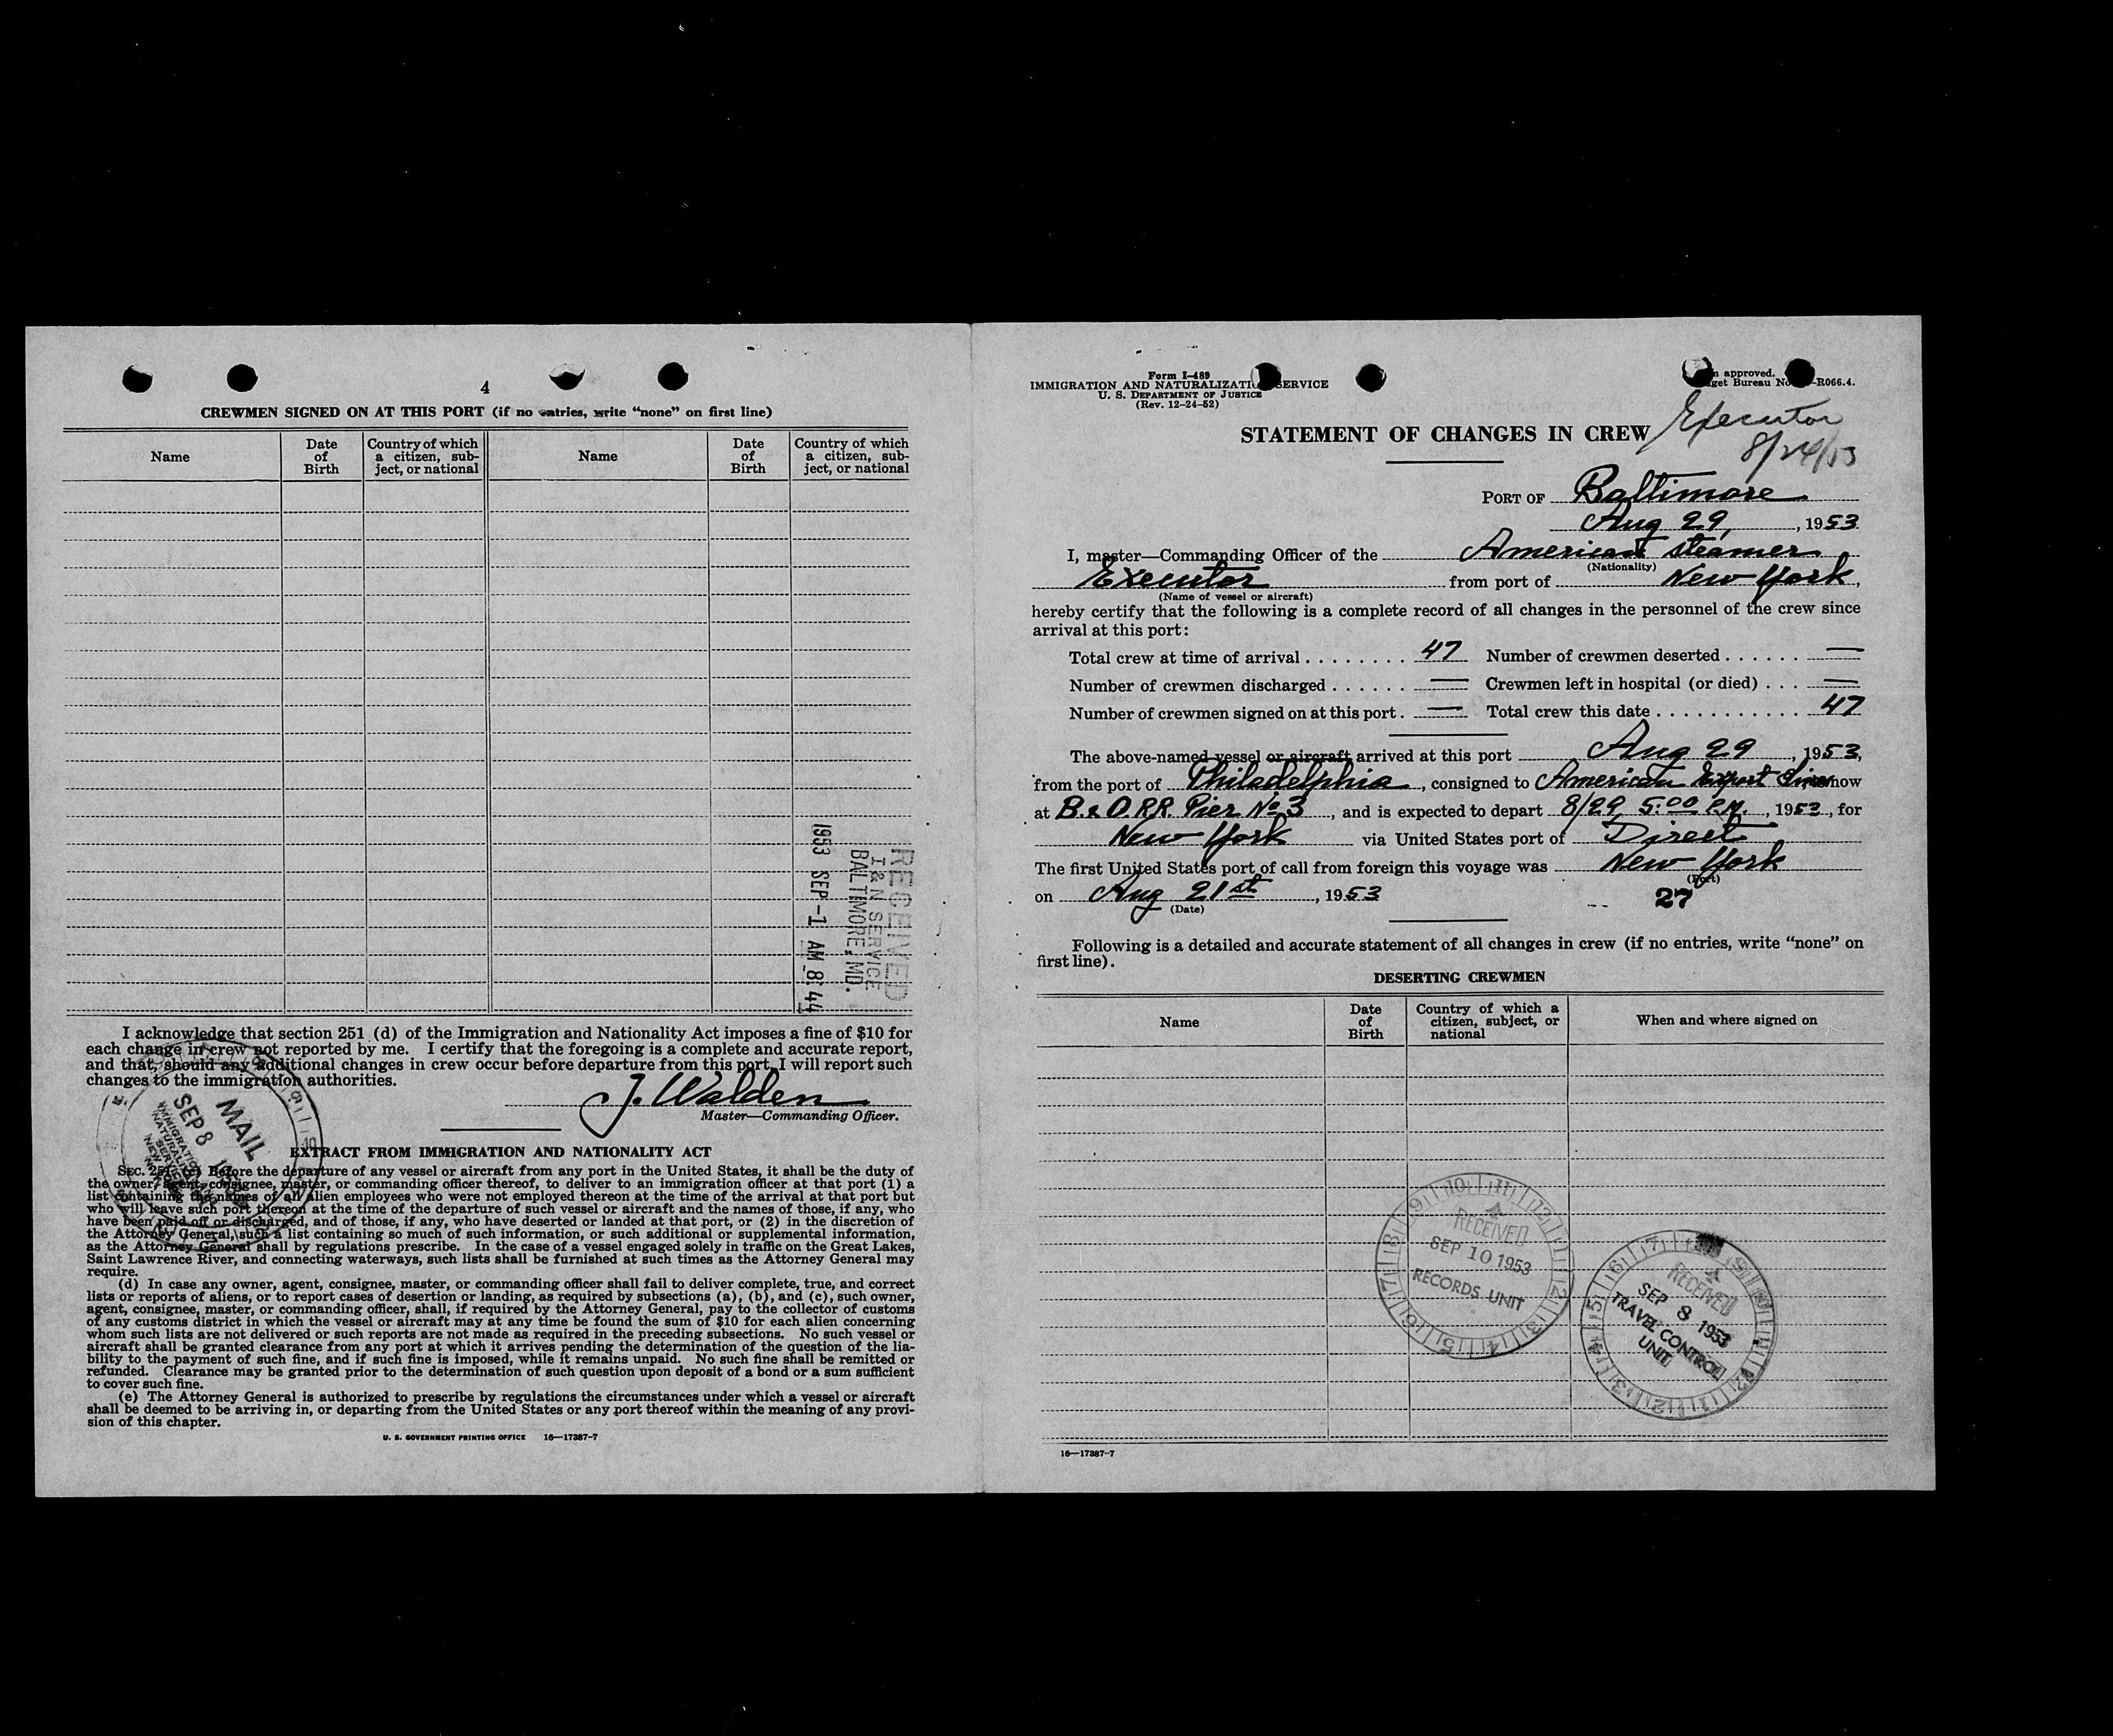 4
CREWMEN SIGNED ON AT THIS PORT (if no entries, write “none” on first line)
Name
Date of Birth
Country of which a citizen, sub-ject, or national
Name
Date of Birth
Country of which a citizen, sub-ject, or national
RECEIVED
I & N SERVICE
BALTIMORE, MD.
1953 SEP -1 AM 8:44
I acknowledge that section 251 (d) of the Immigration and Nationality Act imposes a fine of $10 for
each change in crew not reported by me. I certify that the foregoing is a complete and accurate report,
and that, should any additional changes in crew occur before departure from this port, I will report such
changes to the immigration authorities.
J. Walden
Master—Commanding Officer.
MAIL
SEP 8
EXTRACT FROM IMMIGRATION AND NATIONALITY ACT
SEC. 251. (c) Before the departure of any vessel or aircraft from any port in the United States, it shall be the duty of
the owner, agent, consignee, master, or commanding officer thereof, to deliver to an immigration officer at that port (1) a
list containing the names of all alien employees who were not employed thereon at the time of the arrival at that port but
who will leave such port thereon at the time of the departure of such vessel or aircraft and the names of those, if any, who
have been paid off or discharged, and of those, if any, who have deserted or landed at that port, or (2) in the discretion of
the Attorney General, such a list containing so much of such information, or such additional or supplemental information,
as the Attorney General shall by regulations prescribe. In the case of a vessel engaged solely in traffic on the Great Lakes,
Saint Lawrence River, and connecting waterways, such lists shall be furnished at such times as the Attorney General may
require.
(d) In case any owner, agent, consignee, master, or commanding officer shall fail to deliver complete, true, and correct
lists or reports of aliens, or to report cases of desertion or landing, as required by subsections (a), (b), and (c), such owner,
agent, consignee, master, or commanding officer, shall, if required by the Attorney General, pay to the collector of customs
of any customs district in which the vessel or aircraft may at any time be found the sum of $10 for each alien concerning
whom such lists are not delivered or such reports are not made as required in the preceding subsections. No such vessel or
aircraft shall be granted clearance from any port at which it arrives pending the determination of the question of the lia-
bility to the payment of such fine, and if such fine is imposed, while it remains unpaid. No such fine shall be remitted or
refunded. Clearance may be granted prior to the determination of such question upon deposit of a bond or a sum sufficient
to cover such fine.
(e) The Attorney General is authorized to prescribe by regulations the circumstances under which a vessel or aircraft
shall be deemed to be arriving in, or departing from the United States or any port thereof within the meaning of any provi-
sion of this chapter.
U. S. GOVERNMENT PRINTING OFFICE 16—17387-7
Form I-489
IMMIGRATION AND NATURALIZATION SERVICE
U. S. DEPARTMENT OF JUSTICE
(Rev. 12-24-52)
approved.
get Bureau No. -R066.4.
Executor
8/24/53
STATEMENT OF CHANGES IN CREW
PORT OF Baltimore
Aug 29, , 1953
I, master—Commanding Officer of the American steamer
(Nationality)
Executor from port of New York,
(Name of vessel or aircraft)
hereby certify that the following is a complete record of all changes in the personnel of the crew since
arrival at this port:
Total crew at time of arrival . . . . . . . . 47 Number of crewmen deserted . . . . . . —
Number of crewmen discharged . . . . . . — Crewmen left in hospital (or died) . . . —
Number of crewmen signed on at this port . — Total crew this date . . . . . . . . . . . 47
The above-named vessel or aircraft arrived at this port Aug 29 , 1953,
from the port of Philadelphia , consigned to American Export Lines now
at B. & O. RR. Pier No 3 , and is expected to depart 8/29 5:00 P.M. , 1953 , for
New York via United States port of Direct
The first United States port of call from foreign this voyage was New York
(Port)
on Aug 21st , 1953
(Date)
27
Following is a detailed and accurate statement of all changes in crew (if no entries, write “none” on
first line).
DESERTING CREWMEN
Name
Date of Birth
Country of which a citizen, subject, or national
When and where signed on
RECEIVED
SEP 10 1953
RECORDS UNIT
RECEIVED
SEP 8 1953
TRAVEL CONTROL
UNIT
16—17387-7